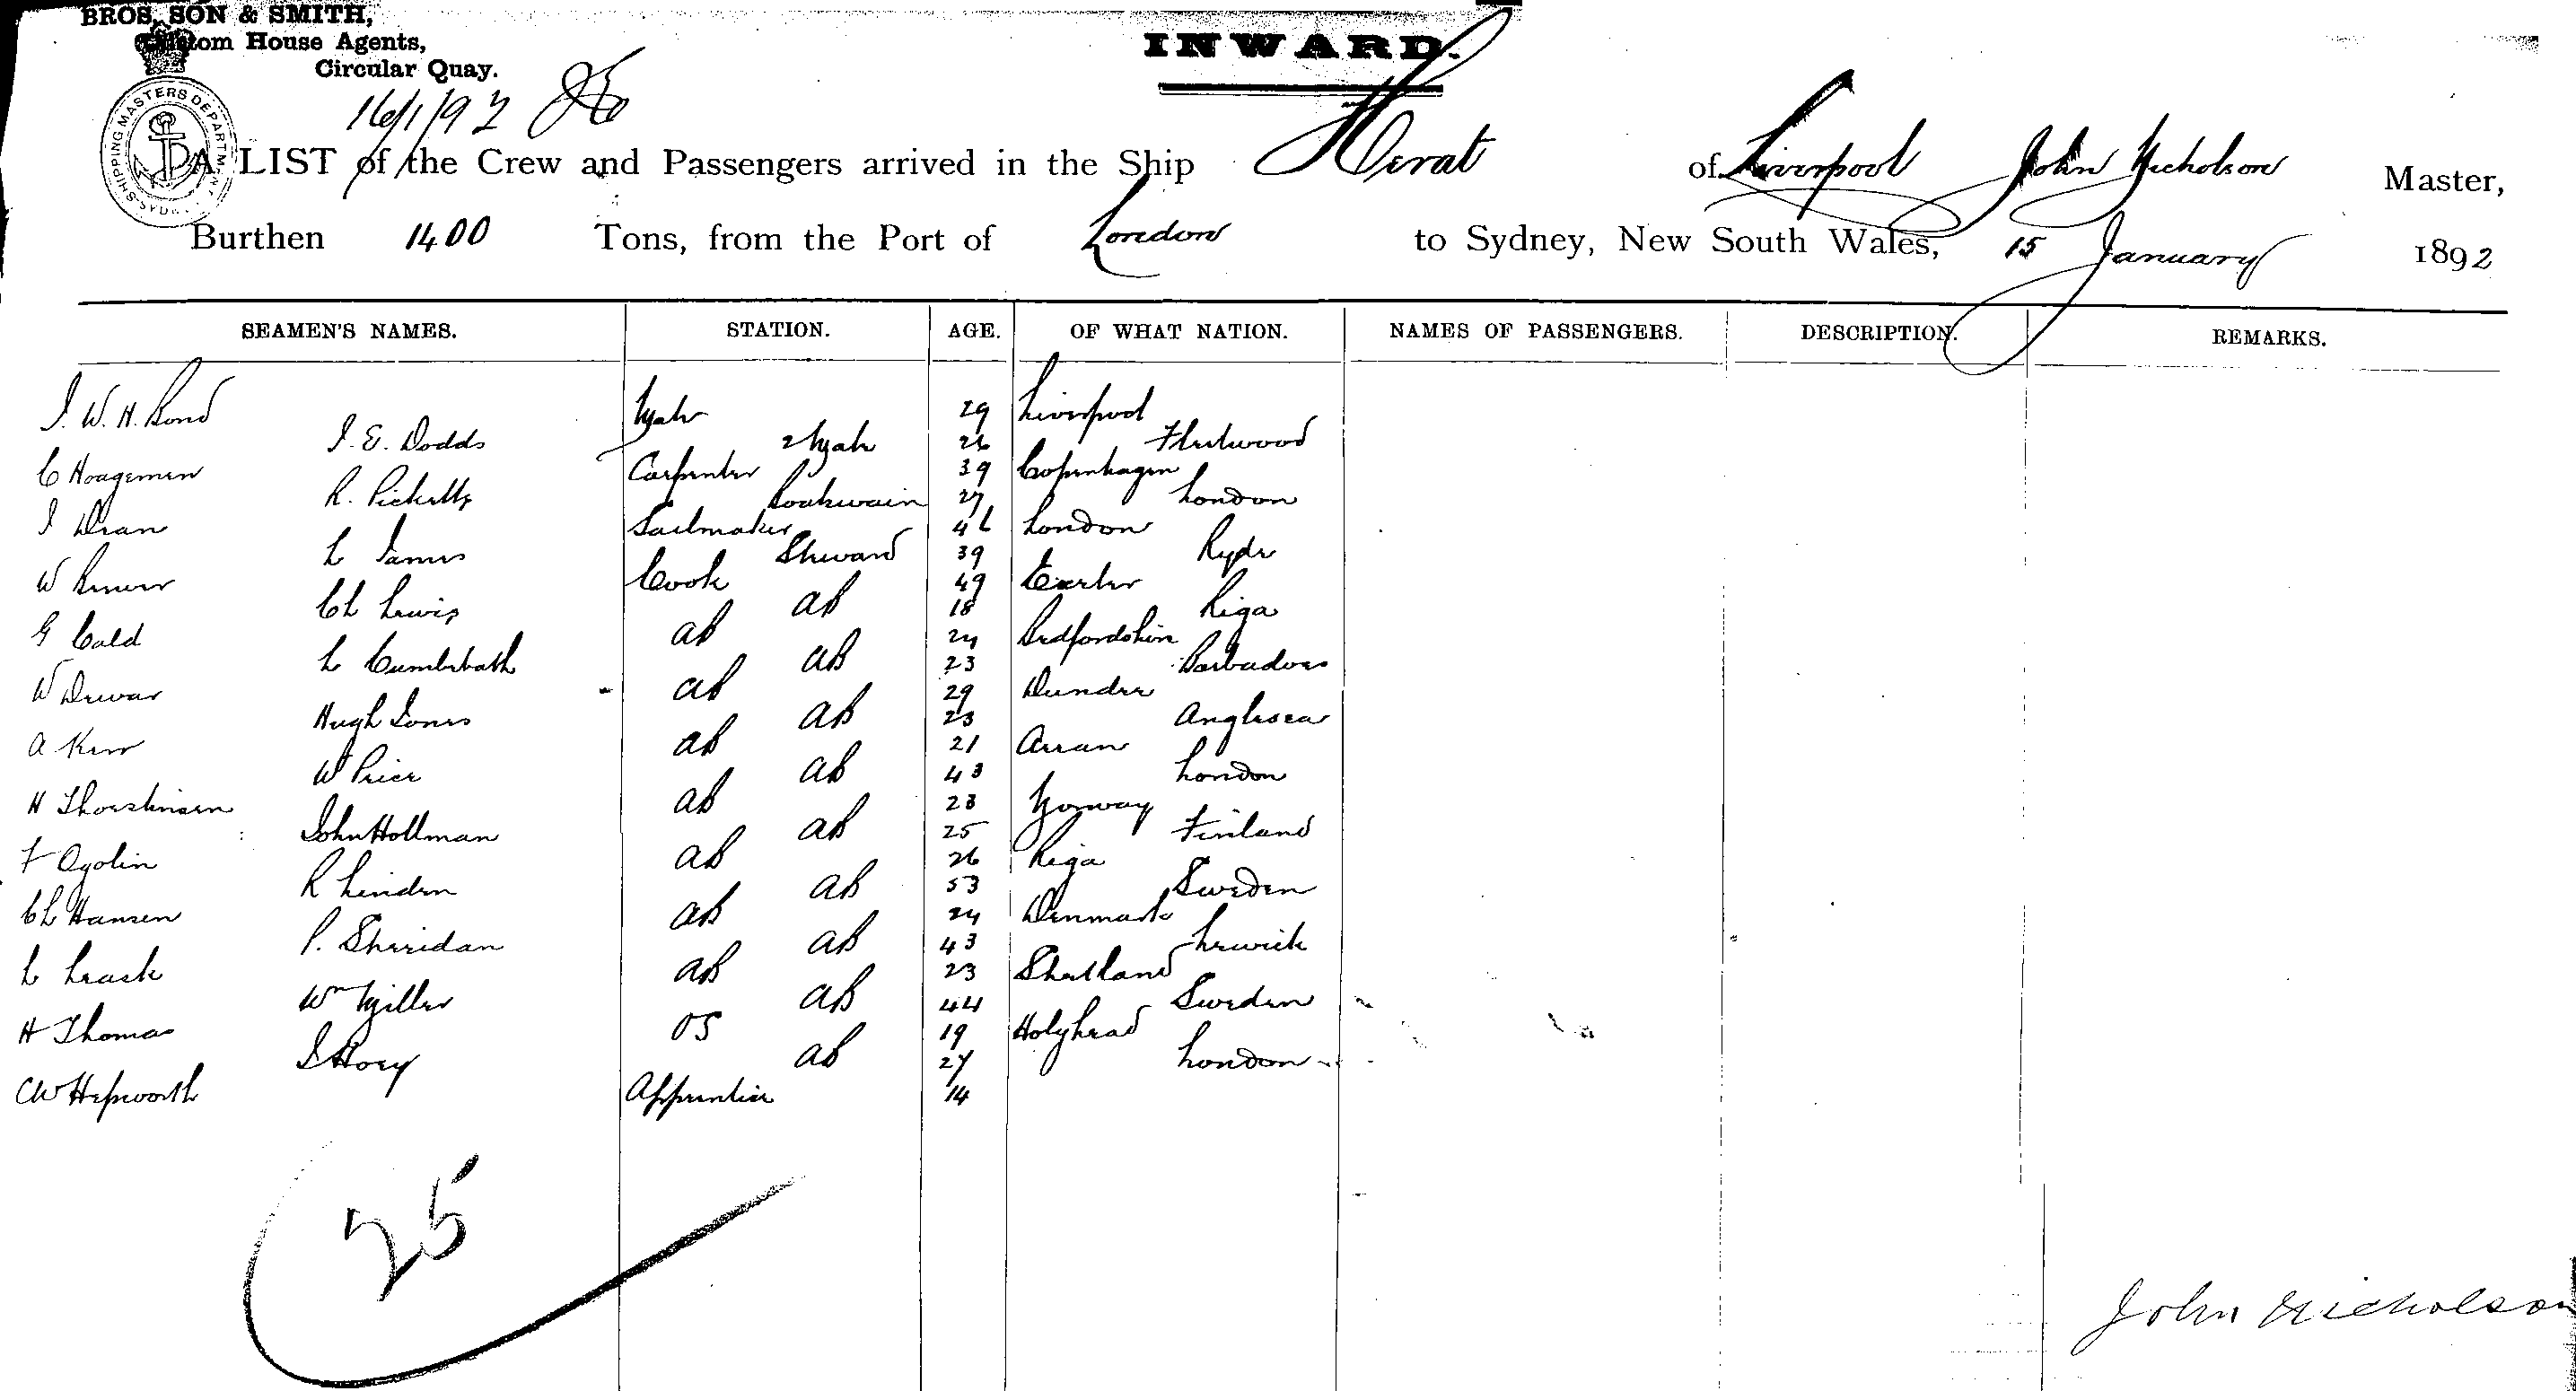 BROS, SON & SMITH,
Custom House Agents,
Circular Quay.
INWARD.
16/1/92
SHIPPING MASTERS DEPARTMENT SYDNEY
A LIST of the Crew and Passengers arrived in the Ship Herat of Liverpool John Nicholson Master,
Burthen 1400 Tons, from the Port of London to Sydney, New South Wales, 15 January 1892
SEAMEN'S NAMES. STATION. AGE. OF WHAT NATION. NAMES OF PASSENGERS. DESCRIPTION. REMARKS.
J. W. H. Bond Mate 29 Liverpool
J. E. Dodds 2 Mate 26 Fleetwood
C Hoagemen Carpenter 39 Copenhagen
R. Picketts Boatswain 27 London
J Dean Sailmaker 46 London
L James Steward 39 Ryde
W Cook 49 Exeter
Ch Lewis AB 18 Riga
G Cald AB 24 Bedfordshire
L Cumberbath AB 23 Barbadoes
W Dewar AB 29 Dundee
Hugh Jones AB 23 Anglesea
A Kerr AB 21 Arran
W Price AB 43 London
H Thorstensen AB 28 Norway
John Hollman AB 25 Finland
F Ogolin AB 26 Riga
R Linden AB 53 Sweden
Ch Hansen AB 24 Denmark
P. Sheridan AB 43 Lerwick
L Leask AB 23 Shetland
Wm Miller AB 44 Sweden
H Thomas OS 19 Holyhead
J Hory AB 27 London
CW Hepworth Apprentice 14
25
John Nicholson